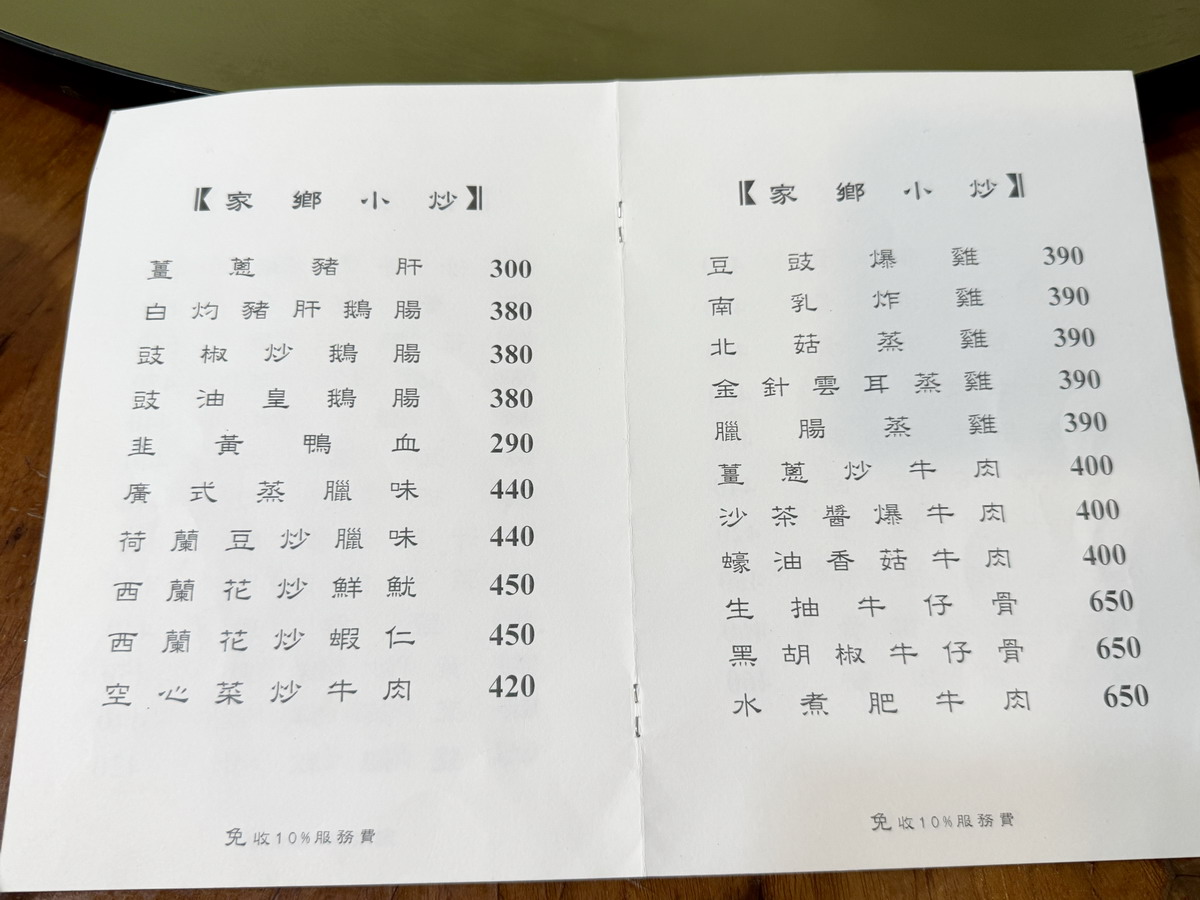 【家鄉小炒】
薑蔥豬肝 300
白灼豬肝鵝腸 380
豉椒炒鵝腸 380
豉油皇鵝腸 380
韭黃鴨血 290
廣式蒸臘味 440
荷蘭豆炒臘味 440
西蘭花炒鮮魷 450
西蘭花炒蝦仁 450
空心菜炒牛肉 420
免收10%服務費
【家鄉小炒】
豆豉爆雞 390
南乳炸雞 390
北菇蒸雞 390
金針雲耳蒸雞 390
臘腸蒸雞 390
薑蔥炒牛肉 400
沙茶醬爆牛肉 400
蠔油香菇牛肉 400
生抽牛仔骨 650
黑胡椒牛仔骨 650
水煮肥牛肉 650
免收10%服務費